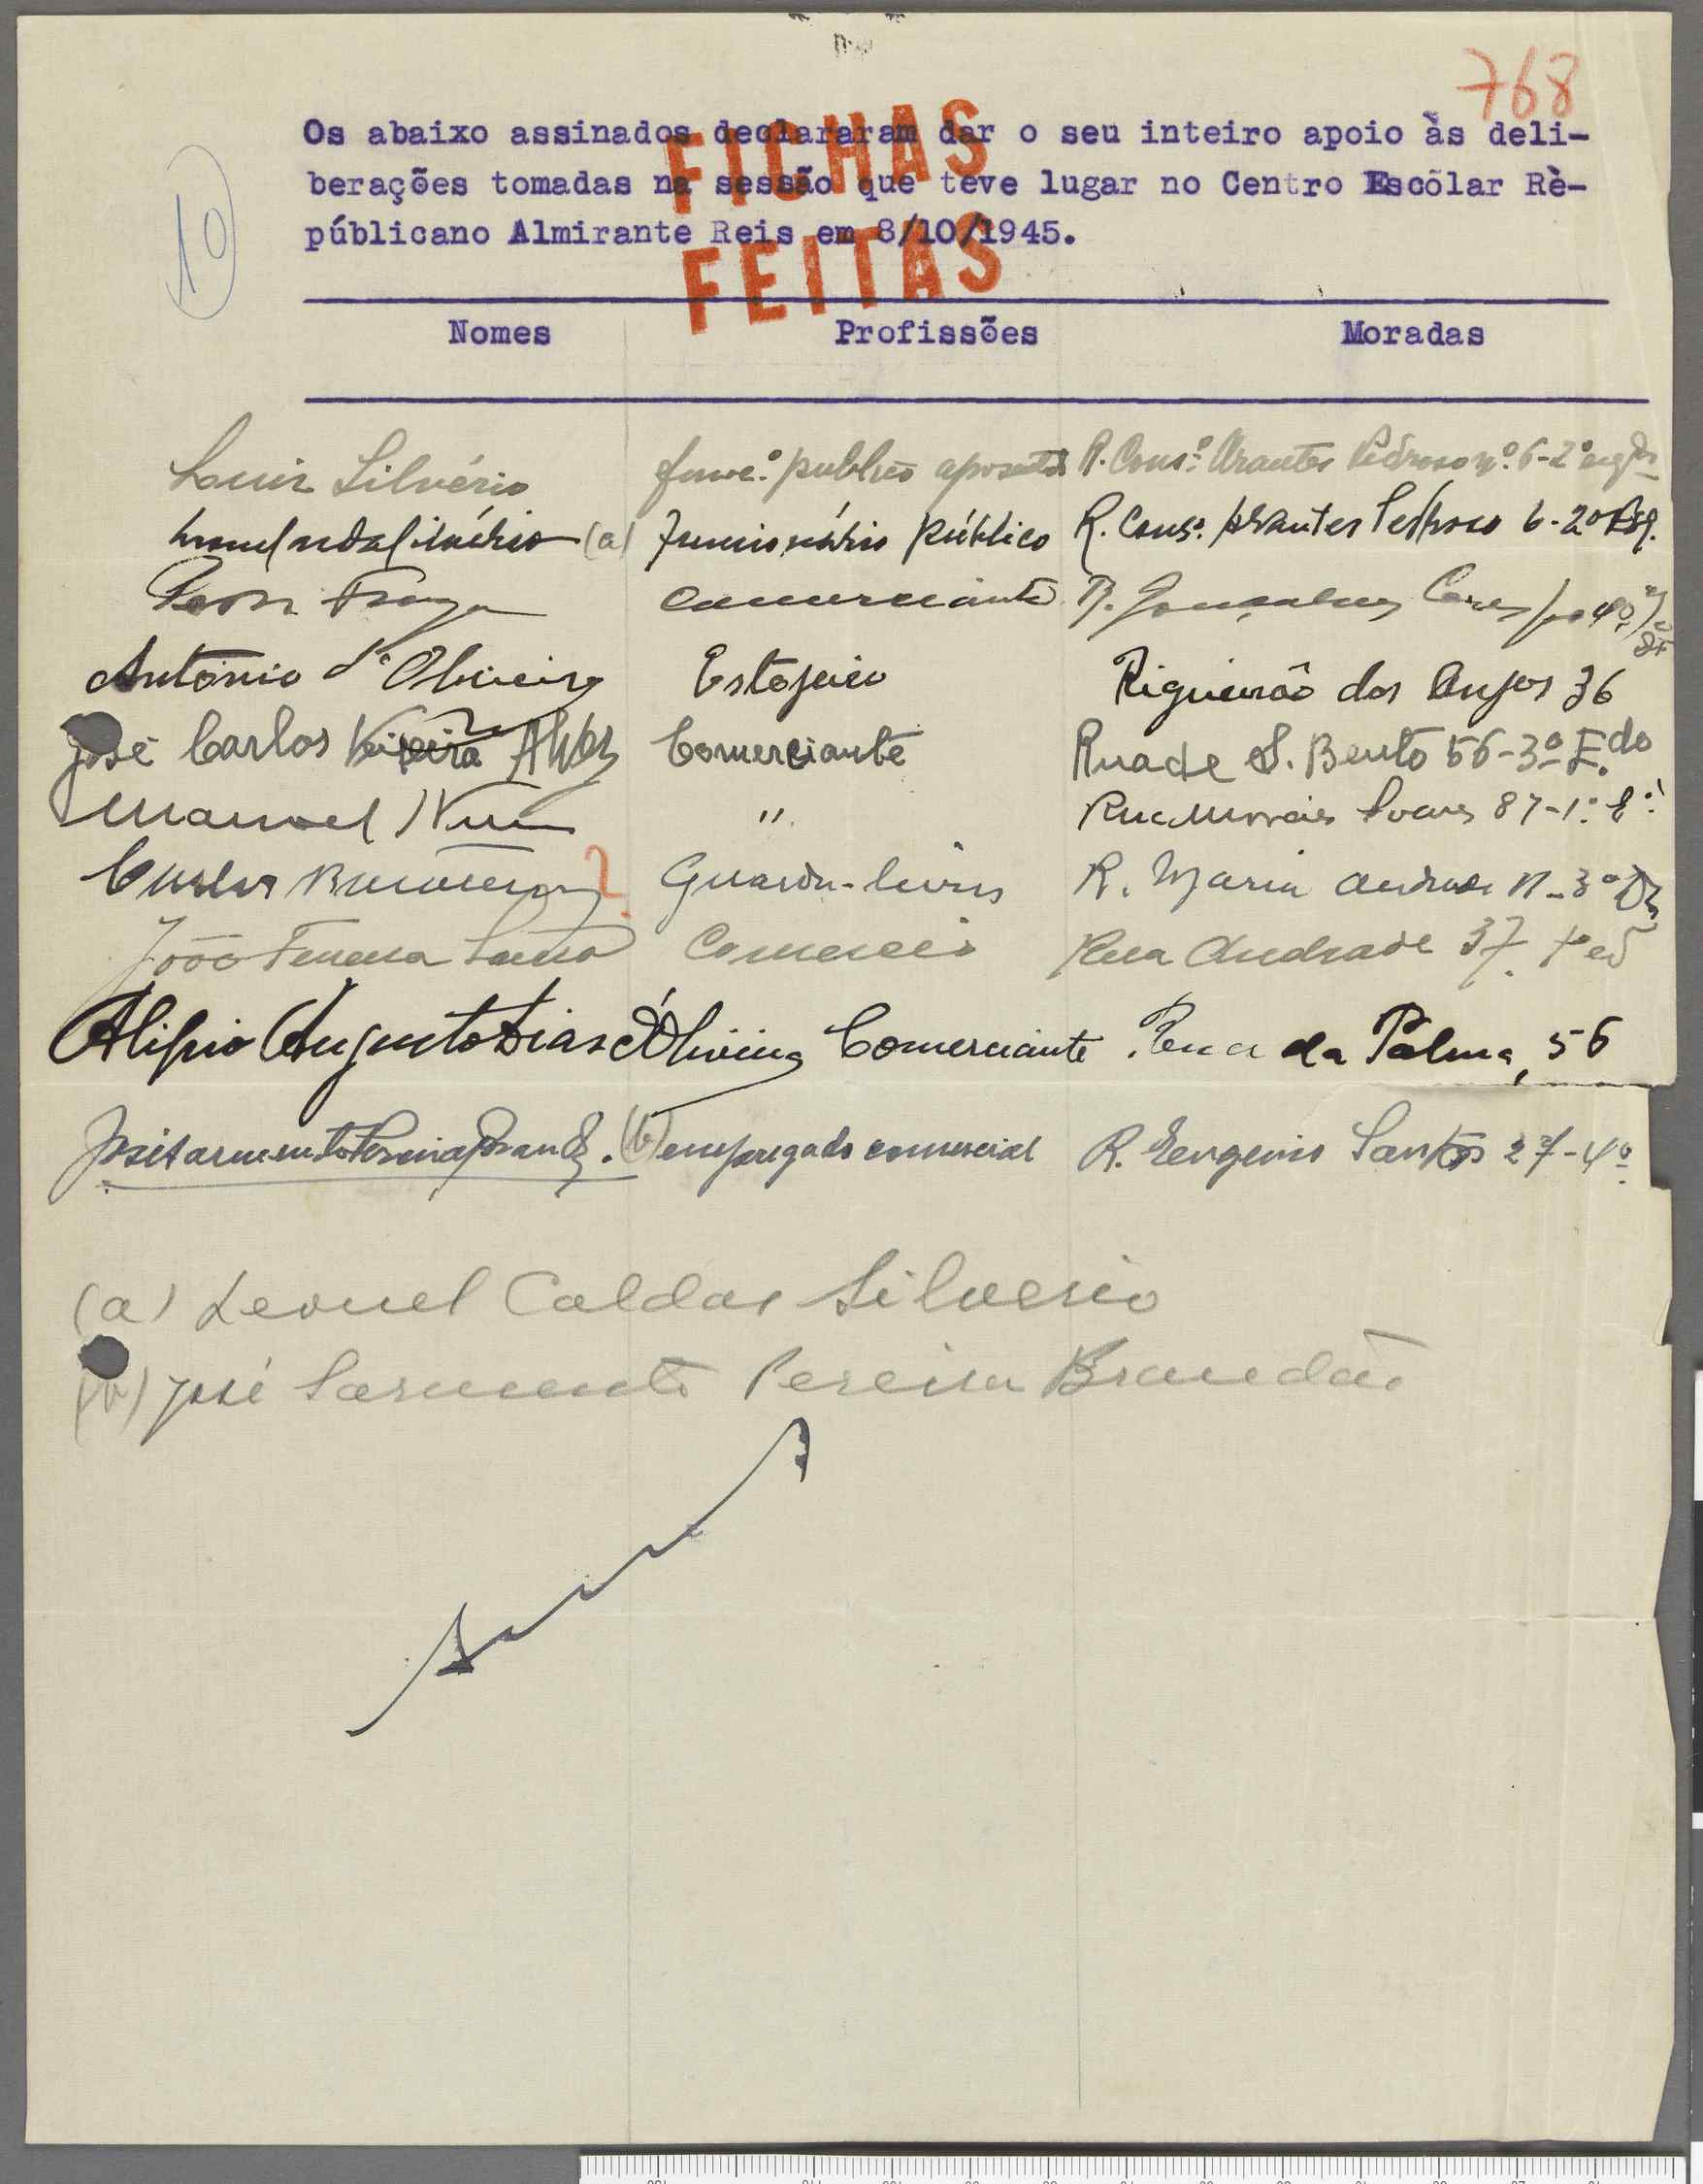 768
10
Os abaixo assinados declararam dar o seu inteiro apoio às deli-
berações tomadas na sessão que teve lugar no Centro Escõlar Rè-
públicano Almirante Reis em 8/10/1945.
FICHAS
FEITAS
Nomes Profissões Moradas
Luis Silvério func.º publico R. Cons.º Arantes Pedroso nº. 6-2º
(a) Funcionário Público R. Cons.º Arantes Pedroso 6-2º Esq.
comerciante R. Gonçalves Crespo
António d'Oliveira Estofeiro Rigueirão dos Anjos 36
José Carlos Alves Comerciante Rua de S. Bento 56-3º E.do
Manoel " Rua Morais Soares 87-1º E.º
Carlos ? Guarda-livros R. Maria Andrade 11-3º
João Comercio Rua Andrade 37
Alipio Augusto Dias d'Oliveira Comerciante Rua da Palma, 56
José Sarmento Pereira Brandão. (b) empregado comercial R. Eugenio Santos 27-4º
(a) Leonel Caldas Silverio
(b) José Sarmento Pereira Brandão